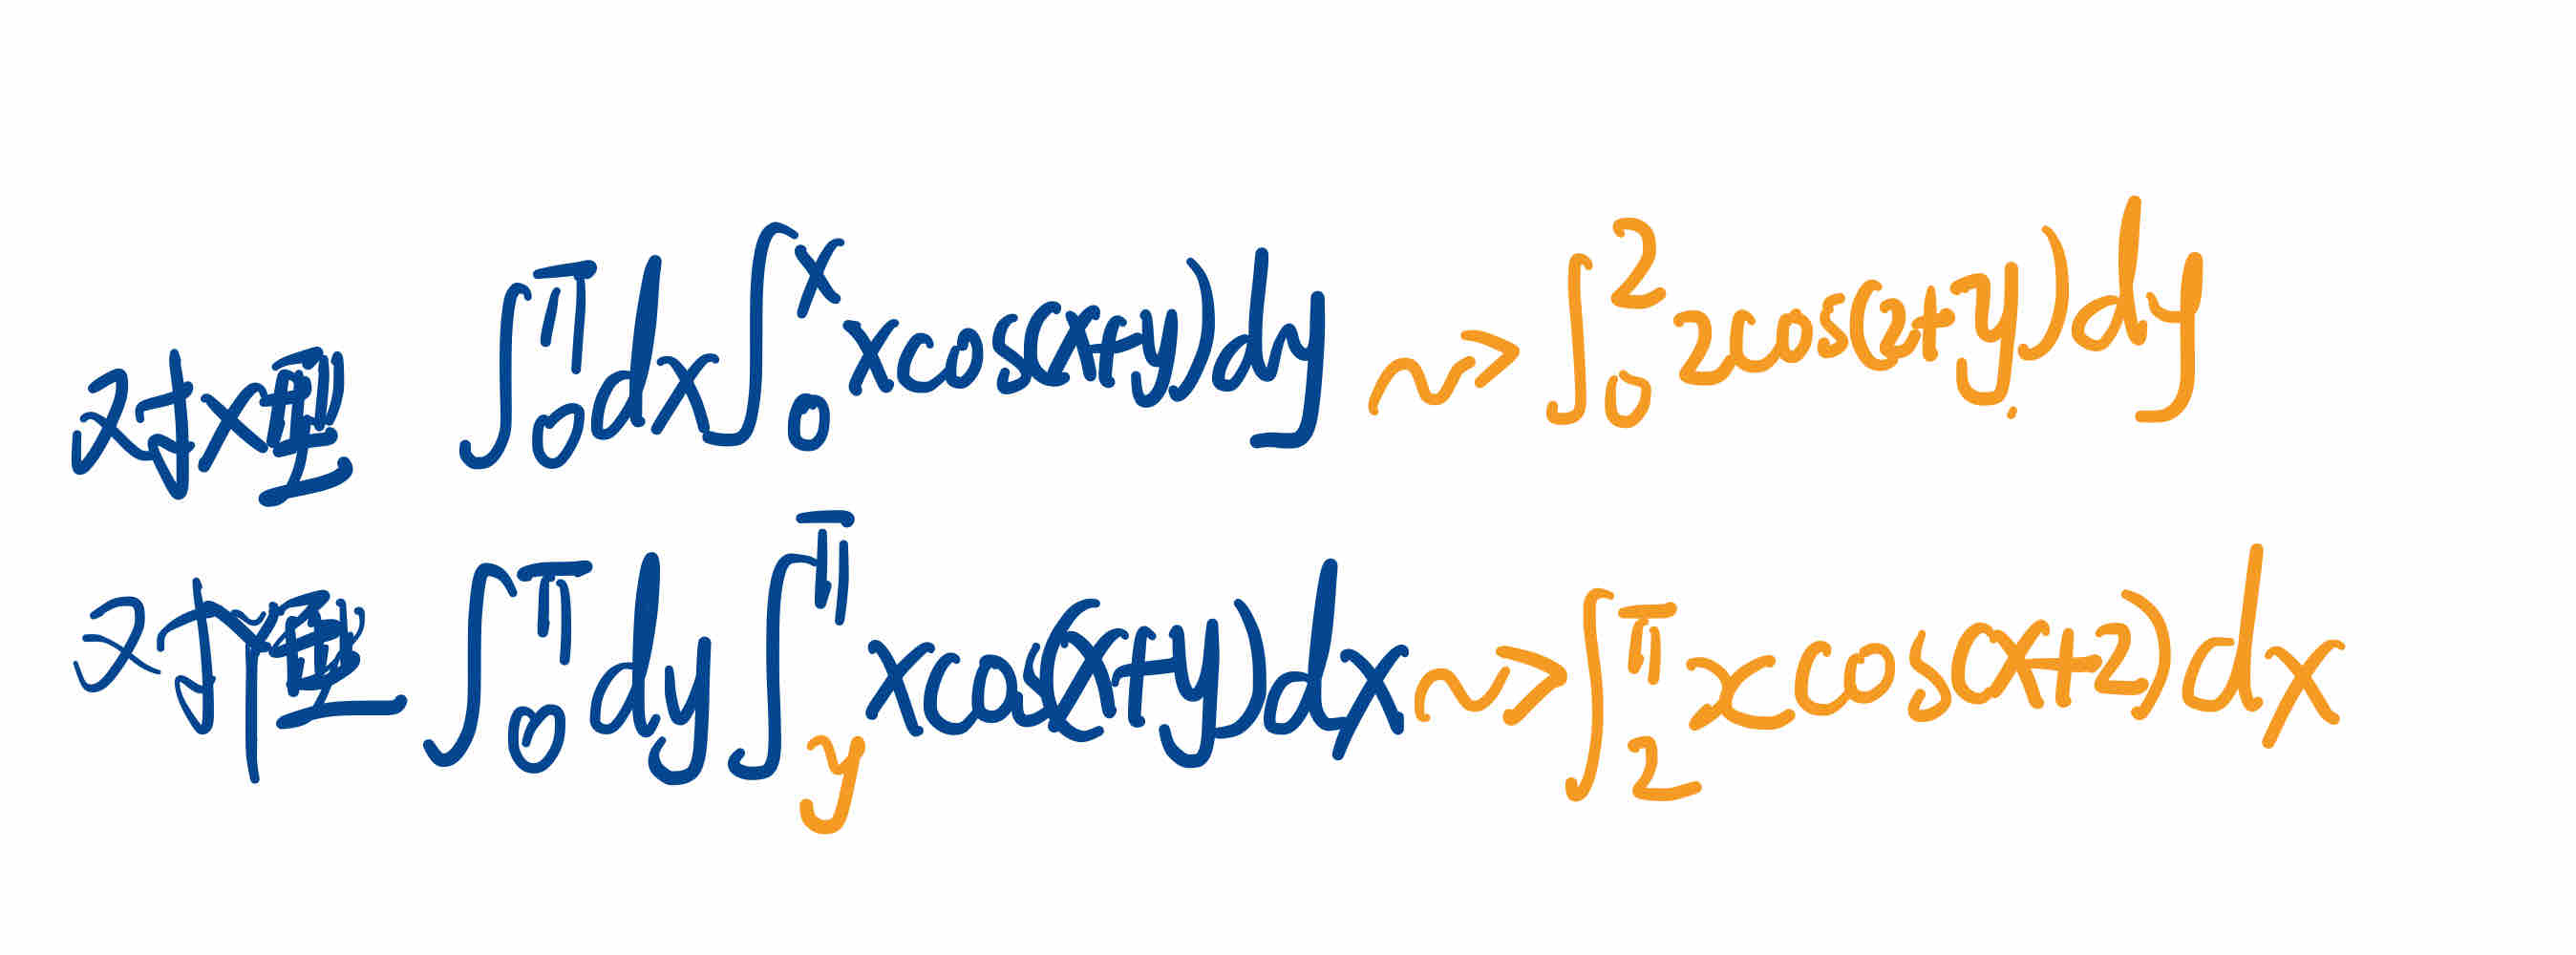 对X型 ∫₀^π dx ∫₀^x xcos(x+y)dy ⇝ ∫₀² 2cos(2+y)dy
对Y型 ∫₀^π dy ∫_y^π xcos(x+y)dx ⇝ ∫₂^π xcos(x+2)dx